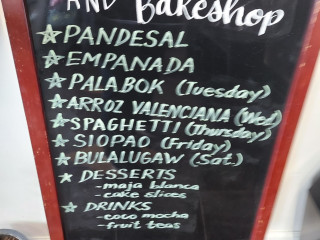 AND Bakeshop
PANDESAL
EMPANADA
PALABOK (Tuesday)
ARROZ VALENCIANA (Wed)
SPAGHETTI (Thursday)
SIOPAO (Friday)
BULALUGAW (Sat.)
DESSERTS
-maja blanca
-cake slices
DRINKS
-coco mocha
-fruit teas